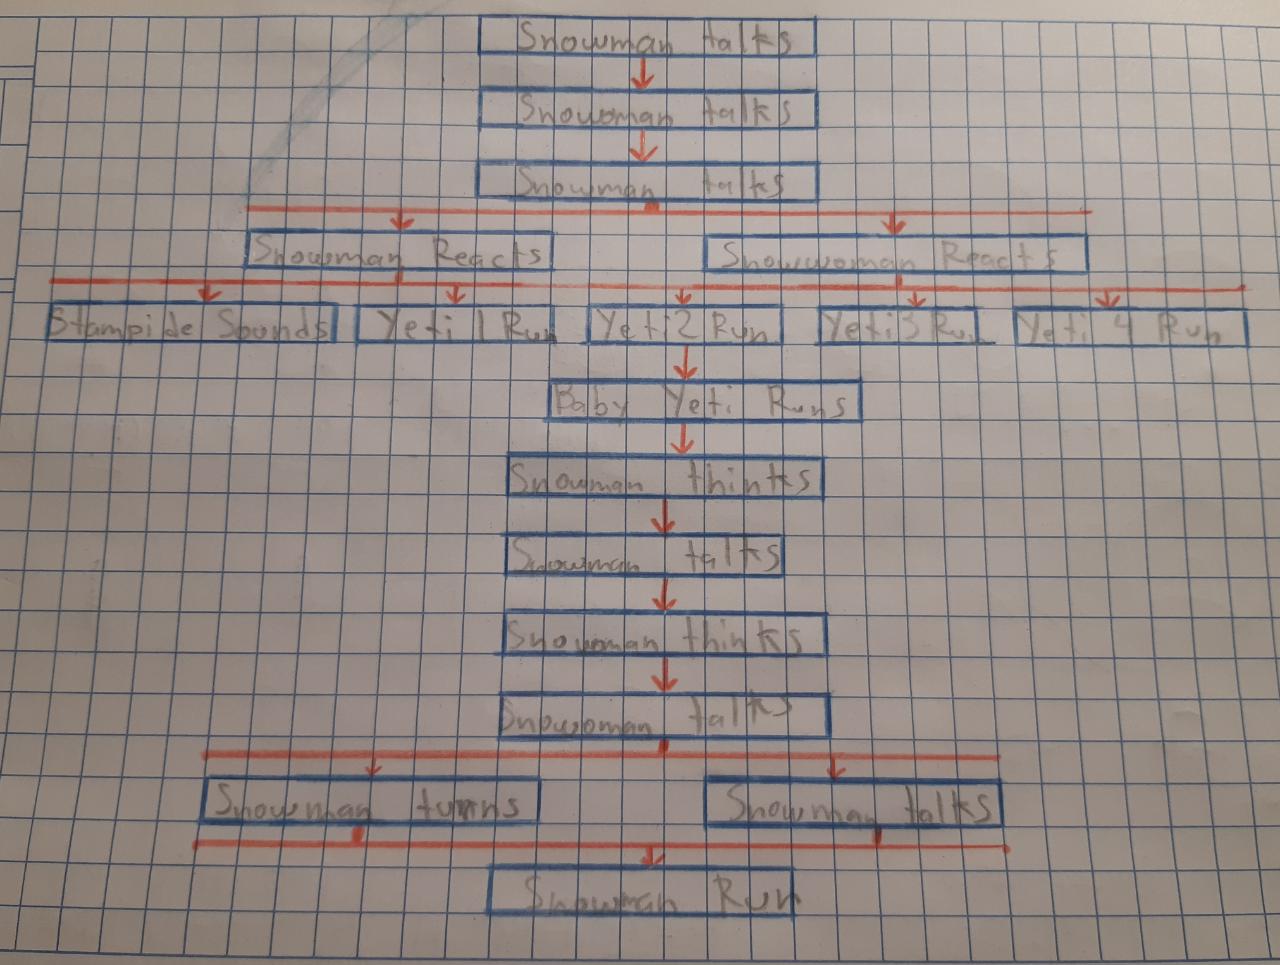 Snowman talks
Snowoman talks
Snowman talks
Snowman Reacts Snowwoman Reacts
Stampide Sounds Yeti 1 Run Yeti 2 Run Yeti 3 Run Yeti 4 Run
Baby Yeti Runs
Snowman thinks
Snowman talks
Snowoman thinks
Snowoman talks
Snowman turns Snowman talks
Snowman Run